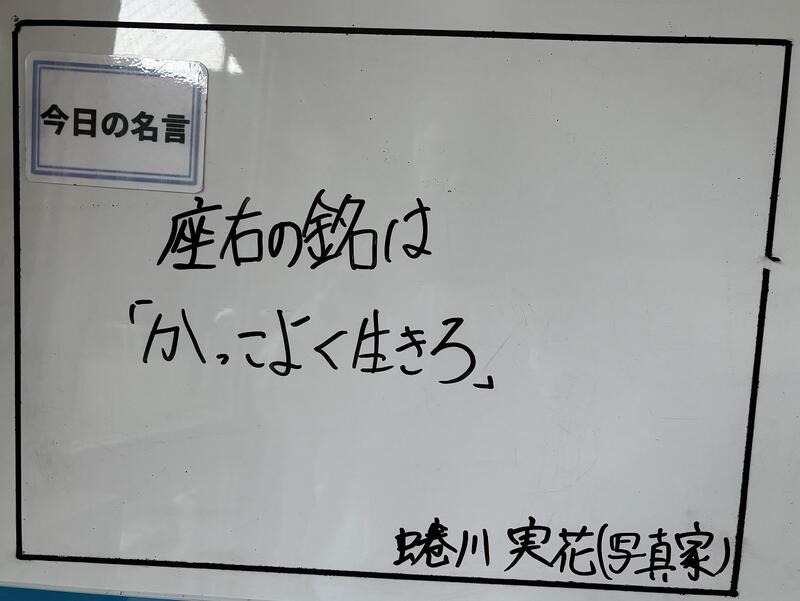 今日の名言
座右の銘は
「かっこよく生きろ」
蜷川 実花(写真家)